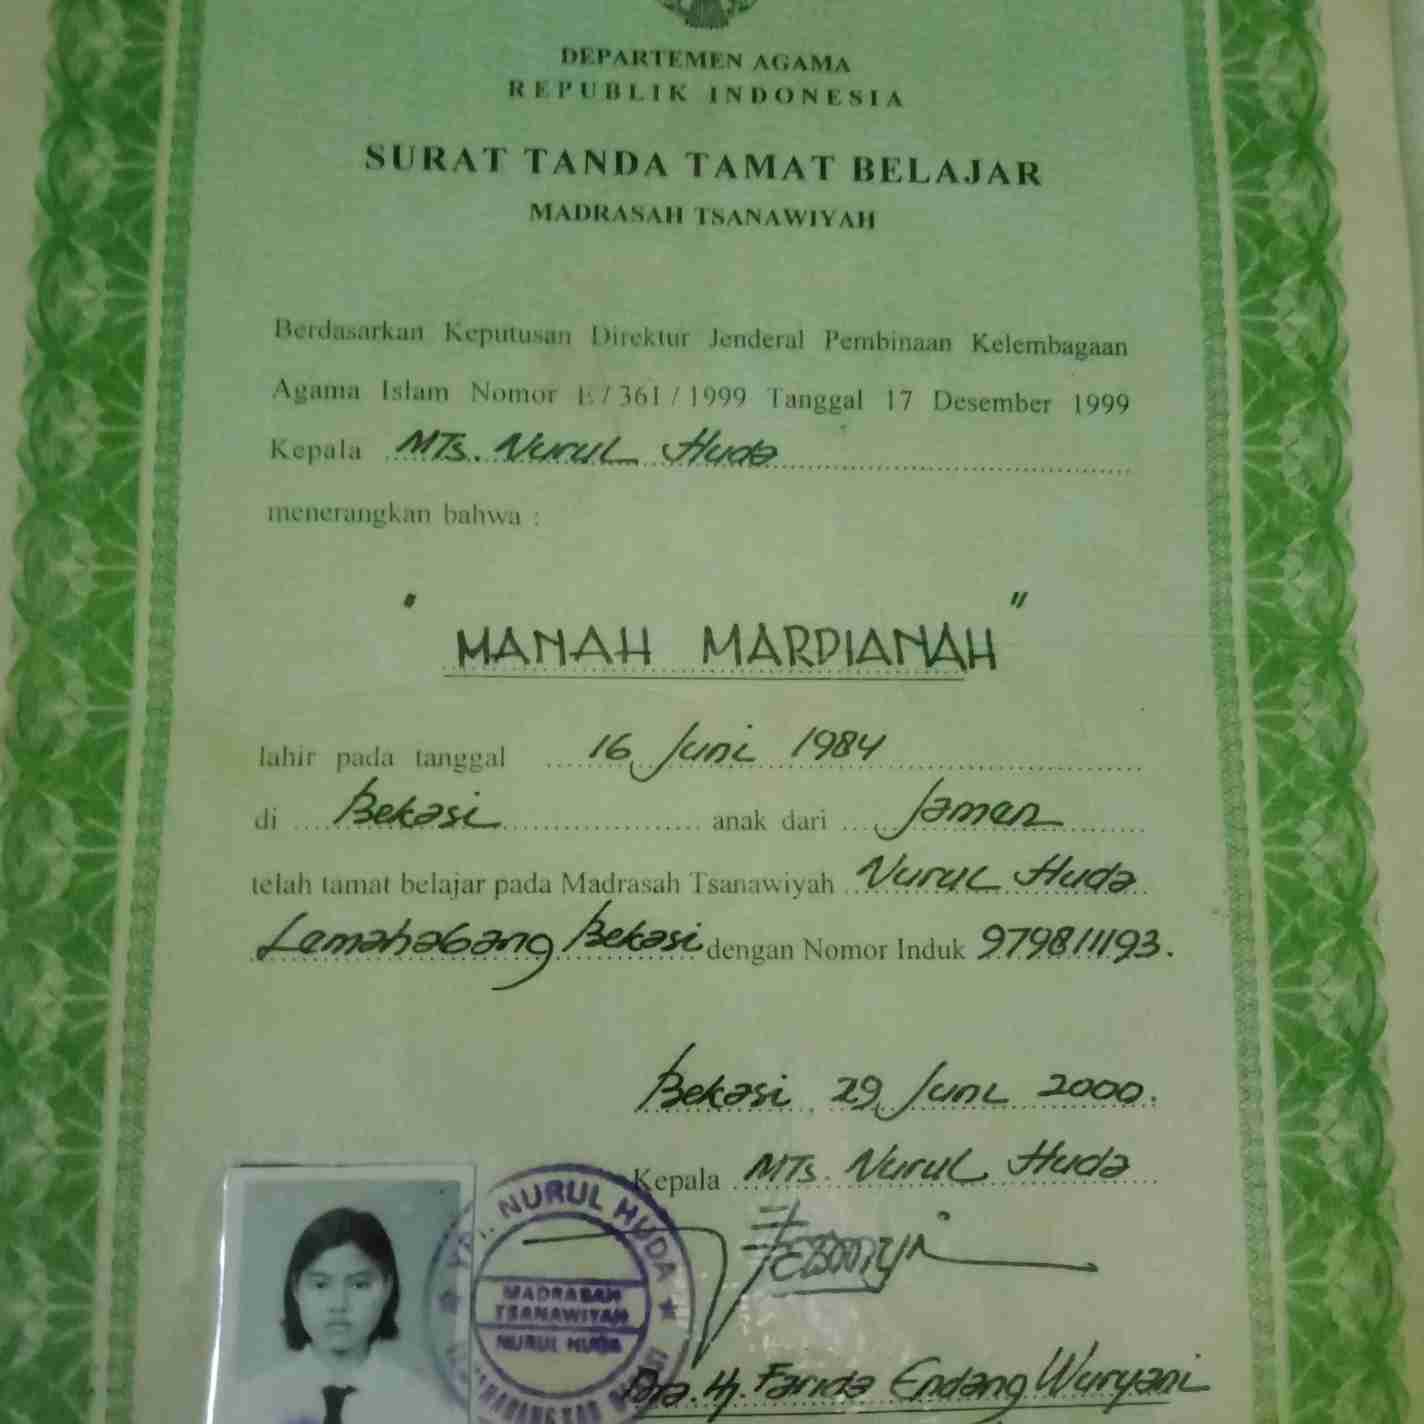 DEPARTEMEN AGAMA
REPUBLIK INDONESIA
SURAT TANDA TAMAT BELAJAR
MADRASAH TSANAWIYAH
Berdasarkan Keputusan Direktur Jenderal Pembinaan Kelembagaan
Agama Islam Nomor E/361/1999 Tanggal 17 Desember 1999
Kepala MTs. Nurul Huda
menerangkan bahwa :
" MANAH MARDIANAH "
lahir pada tanggal 16 Juni 1984
di Bekasi anak dari Jaman
telah tamat belajar pada Madrasah Tsanawiyah Nurul Huda
Lemahabang Bekasi dengan Nomor Induk 979811193.
Bekasi, 29 Juni 2000.
Kepala MTs. Nurul Huda
NURUL HUDA
MADRASAH
TSANAWIYAH
NURUL HUDA
Dra. Hj. Farida Endang Wuryani